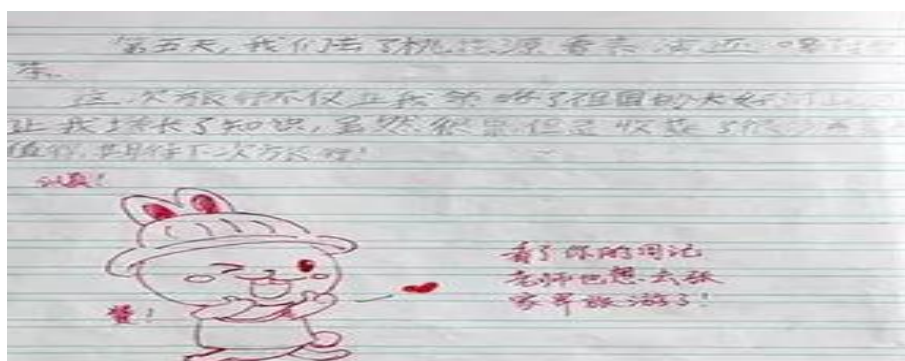 第五天，我们去了桃花源看表演还喝
茶。
这次旅行不仅让我领略了祖国的大好
让我增长了知识，虽然很累但是收获了很多
值得，期待下一次旅行！
认真！
看了你的周记
老师也想去张
家界旅游了！
赞！